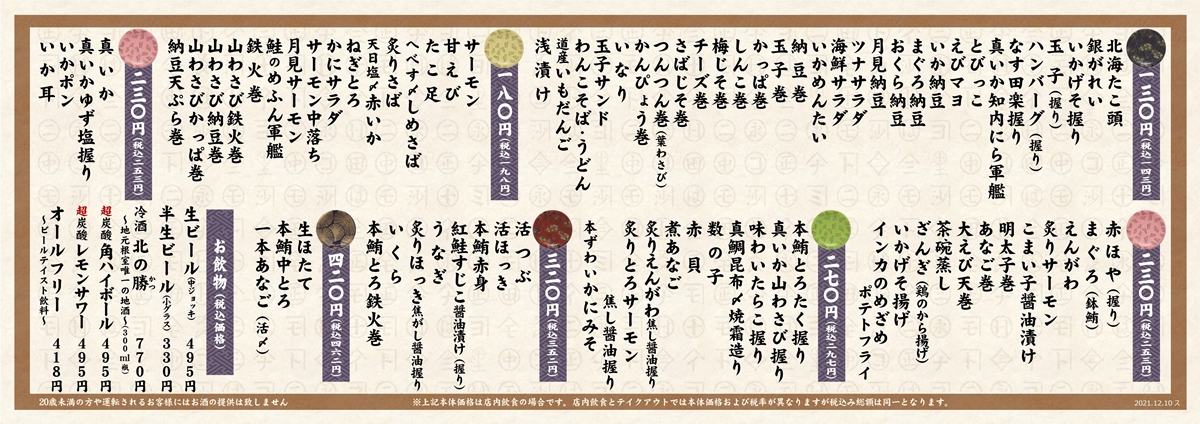 一三〇円(税込一四三円)
北海たこ頭
銀がれい
いかげそ握り
玉子(握り)
ハンバーグ(握り)
なす田楽握り
真いか知内にら軍艦
とびっこ
えびマヨ
いか納豆
まぐろ納豆
おくら納豆
月見納豆
ツナサラダ
海鮮サラダ
いかめんたい
納豆巻
玉子巻
かっぱ巻
しんこ巻
梅じそ巻
チーズ巻
さばじそ巻
つんつん巻(葉わさび)
かんぴょう巻
いなり
玉子サンド
わんこそば・うどん
道産いもだんご
浅漬け
一八〇円(税込一九八円)
サーモン
甘えび
たこ足
へべす〆しめさば
炙りさば
天日塩〆赤いか
ねぎとろ
かにサラダ
サーモン中落ち
月見サーモン
鮭のめふん軍艦
鉄火巻
山わさび鉄火巻
山わさび納豆巻
山わさびかっぱ巻
納豆天ぷら巻
二三〇円(税込二五三円)
真いか
真いかゆず塩握り
いかポン
いか耳
二三〇円(税込二五三円)
赤ほや(握り)
まぐろ(鉢鮪)
えんがわ
炙りサーモン
こまい子醤油漬け
明太子巻
あなご巻
大えび天巻
茶碗蒸し
ざんぎ(鶏のから揚げ)
いかげそ揚げ
インカのめざめ
ポテトフライ
二七〇円(税込二九七円)
本鮪とろたく握り
真いか山わさび握り
味わいたらこ握り
真鯛昆布〆焼霜造り
数の子
赤貝
煮あなご
炙りえんがわ焦し醤油握り
炙りとろサーモン
焦し醤油握り
本ずわいかにみそ
三二〇円(税込三五二円)
活つぶ
活ほっき
本鮪赤身
紅鮭すじこ醤油漬け(握り)
うなぎ
炙りほっき焦がし醤油握り
いくら
本鮪とろ鉄火巻
四二〇円(税込四六二円)
生ほたて
本鮪中とろ
一本あなご(活〆)
お飲物(税込価格)
生ビール(中ジョッキ) 495円
半生ビール(小グラス) 330円
冷酒 北の勝(かつ) 770円
~地元根室唯一の地酒~(300ml 瓶)
超炭酸 角ハイボール 495円
超炭酸 レモンサワー 495円
オールフリー 418円
~ビールテイスト飲料~
20歳未満の方や運転されるお客様にはお酒の提供は致しません
※上記本体価格は店内飲食の場合です。店内飲食とテイクアウトでは本体価格および税率が異なりますが税込み総額は同一となります。
2021.12.10ス